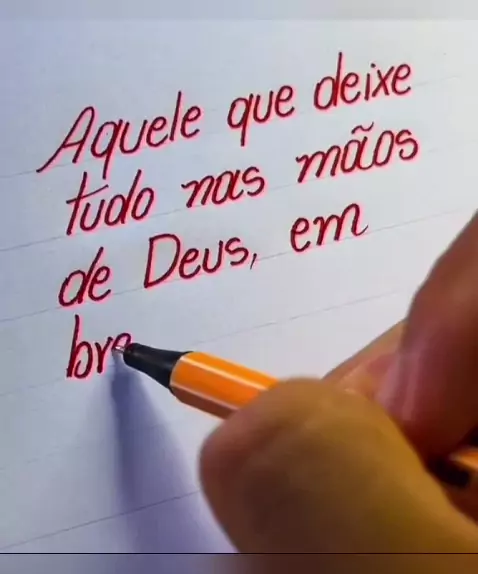 Aquele que deixe
tudo nas mãos
de Deus, em
bre